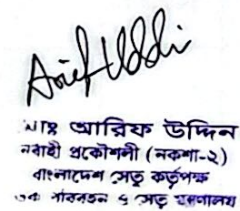 Arief Uddin
মোঃ আরিফ উদ্দিন
নির্বাহী প্রকৌশলী (নকশা-২)
বাংলাদেশ সেতু কর্তৃপক্ষ
সেতু মন্ত্রণালয়